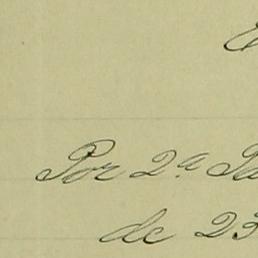 Por 2ª
de 23